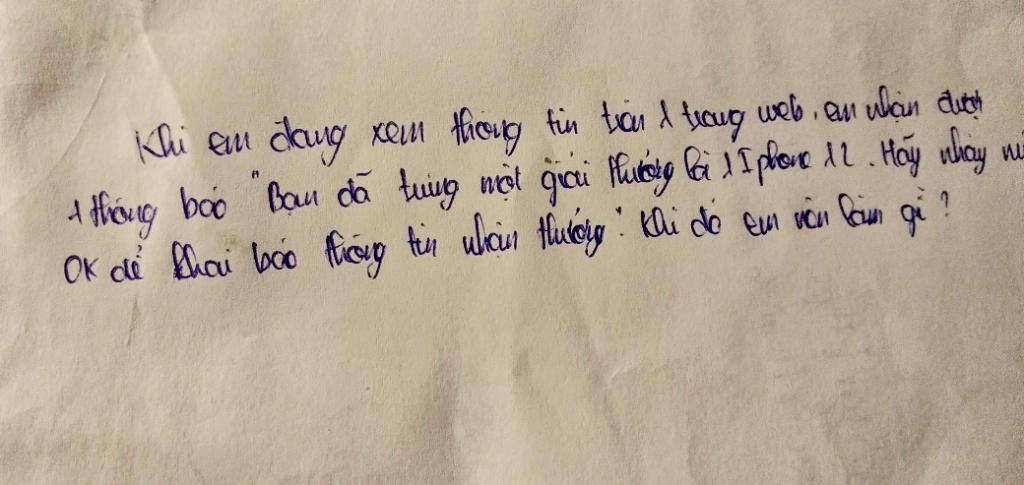 Khi em đang xem thông tin trên 1 trang web, em nhận được
1 thông báo "Bạn đã trúng một giải thưởng là 1 Iphone 12. Hãy nháy
OK để khai báo thông tin nhận thưởng". Khi đó em nên làm gì?